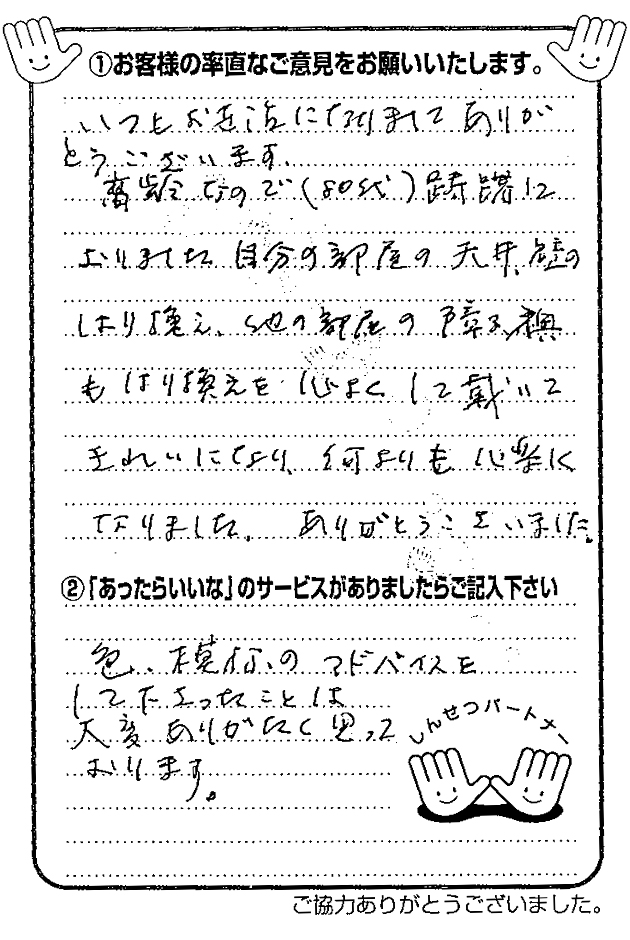 ①お客様の率直なご意見をお願いいたします。
いつもお世話になりましてありが
とうございます。
高齢なので(80代)躊躇して
おりました自分の部屋の天井、壁の
はり換え、他の部屋の障子、襖
もはり換えを心よくして戴いて
きれいになり、何よりも心楽に
なりました。ありがとうございました。
②「あったらいいな」のサービスがありましたらご記入下さい
色、模様のアドバイスを
して下さったことは
大変ありがたく思って
おります。
しんせつパートナー
ご協力ありがとうございました。